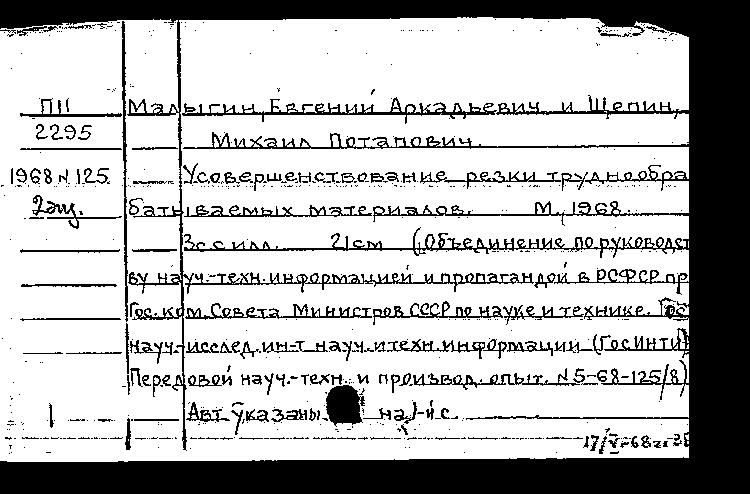 П11 Малыгин, Евгений Аркадьевич и Щепин,
2295 Михаил Потапович.
1968 № 125 Усовершенствование резки труднообра
2 экз. батываемых материалов. М., 1968.
3с с илл. 21см (Объединение по руководст
ву науч.-техн. информацией и пропагандой в РСФСР пр
Гос. ком. Совета Министров СССР по науке и технике. Гос
науч.-исслед. ин-т науч. и техн. информации (ГосИНТИ)
Передовой науч.-техн. и производ. опыт. №5-68-125/8)
Авт. указаны на 1-й с.
17/V-68г.